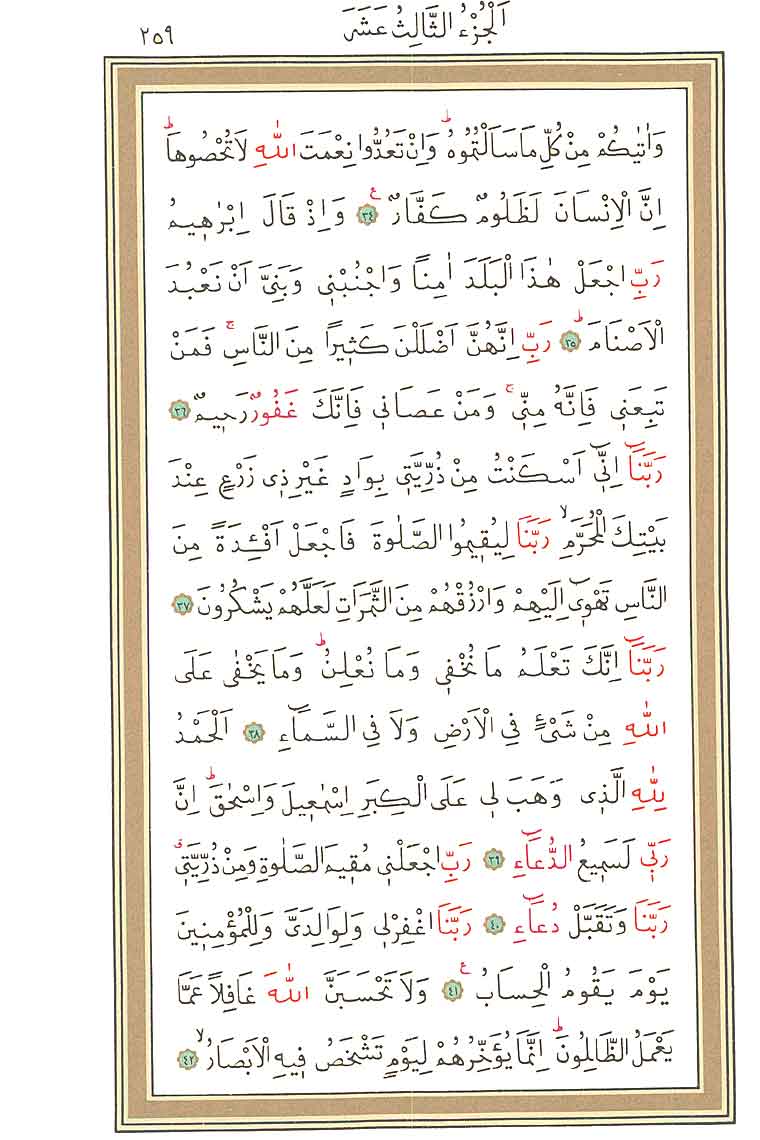 اَلْجُزْءُ الثَّالِثُ عَشَرَ ٢٥٩
وَاٰتٰيكُمْ مِنْ كُلِّ مَا سَاَلْتُمُوهُۜ وَاِنْ تَعُدُّوا نِعْمَتَ اللّٰهِ لَا تُحْصُوهَاۜ
اِنَّ الْاِنْسَانَ لَظَلُومٌ كَفَّارٌ ﴿٣٤﴾ وَاِذْ قَالَ اِبْرٰهٖيمُ
رَبِّ اجْعَلْ هٰذَا الْبَلَدَ اٰمِنًا وَاجْنُبْنٖي وَبَنِيَّ اَنْ نَعْبُدَ
الْاَصْنَامَۜ ﴿٣٥﴾ رَبِّ اِنَّهُنَّ اَضْلَلْنَ كَثٖيرًا مِنَ النَّاسِۚ فَمَنْ
تَبِعَنٖي فَاِنَّهُ مِنّٖيۚ وَمَنْ عَصَانٖي فَاِنَّكَ غَفُورٌ رَحٖيمٌ ﴿٣٦﴾
رَبَّنَٓا اِنّٖٓي اَسْكَنْتُ مِنْ ذُرِّيَّتٖي بِوَادٍ غَيْرِ ذٖي زَرْعٍ عِنْدَ
بَيْتِكَ الْمُحَرَّمِۙ رَبَّنَا لِيُقٖيمُوا الصَّلٰوةَ فَاجْعَلْ اَفْـِٔدَةً مِنَ
النَّاسِ تَهْوٖٓي اِلَيْهِمْ وَارْزُقْهُمْ مِنَ الثَّمَرَاتِ لَعَلَّهُمْ يَشْكُرُونَ ﴿٣٧﴾
رَبَّنَٓا اِنَّكَ تَعْلَمُ مَا نُخْفٖي وَمَا نُعْلِنُۜ وَمَا يَخْفٰى عَلَى
اللّٰهِ مِنْ شَيْءٍ فِي الْاَرْضِ وَلَا فِي السَّمَٓاءِ ﴿٣٨﴾ اَلْحَمْدُ
لِلّٰهِ الَّذٖي وَهَبَ لٖي عَلَى الْكِبَرِ اِسْمٰعٖيلَ وَاِسْحٰقَۜ اِنَّ
رَبّٖي لَسَمٖيعُ الدُّعَٓاءِ ﴿٣٩﴾ رَبِّ اجْعَلْنٖي مُقٖيمَ الصَّلٰوةِ وَمِنْ ذُرِّيَّتٖيۗ
رَبَّنَا وَتَقَبَّلْ دُعَٓاءِ ﴿٤٠﴾ رَبَّنَا اغْفِرْ لٖي وَلِوَالِدَيَّ وَلِلْمُؤْمِنٖينَ
يَوْمَ يَقُومُ الْحِسَابُ ﴿٤١﴾ وَلَا تَحْسَبَنَّ اللّٰهَ غَافِلًا عَمَّا
يَعْمَلُ الظَّالِمُونَۜ اِنَّمَا يُؤَخِّرُهُمْ لِيَوْمٍ تَشْخَصُ فٖيهِ الْاَبْصَارُۙ ﴿٤٢﴾